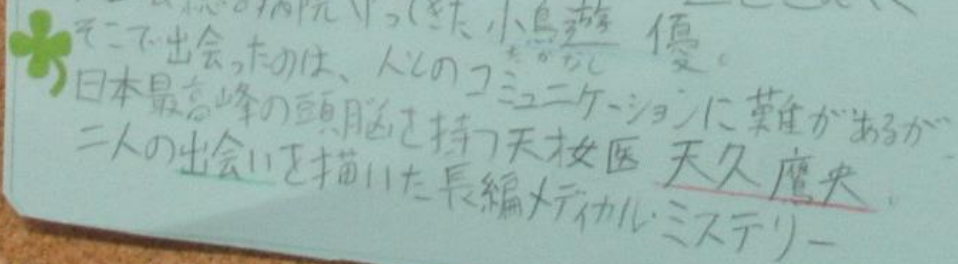 病院にやってきた、小鳥遊 優。
たかなし
そこで出会ったのは、人とのコミュニケーションに難があるが
日本最高峰の頭脳を持つ天才女医 天久鷹央。
二人の出会いを描いた長編メディカル・ミステリー